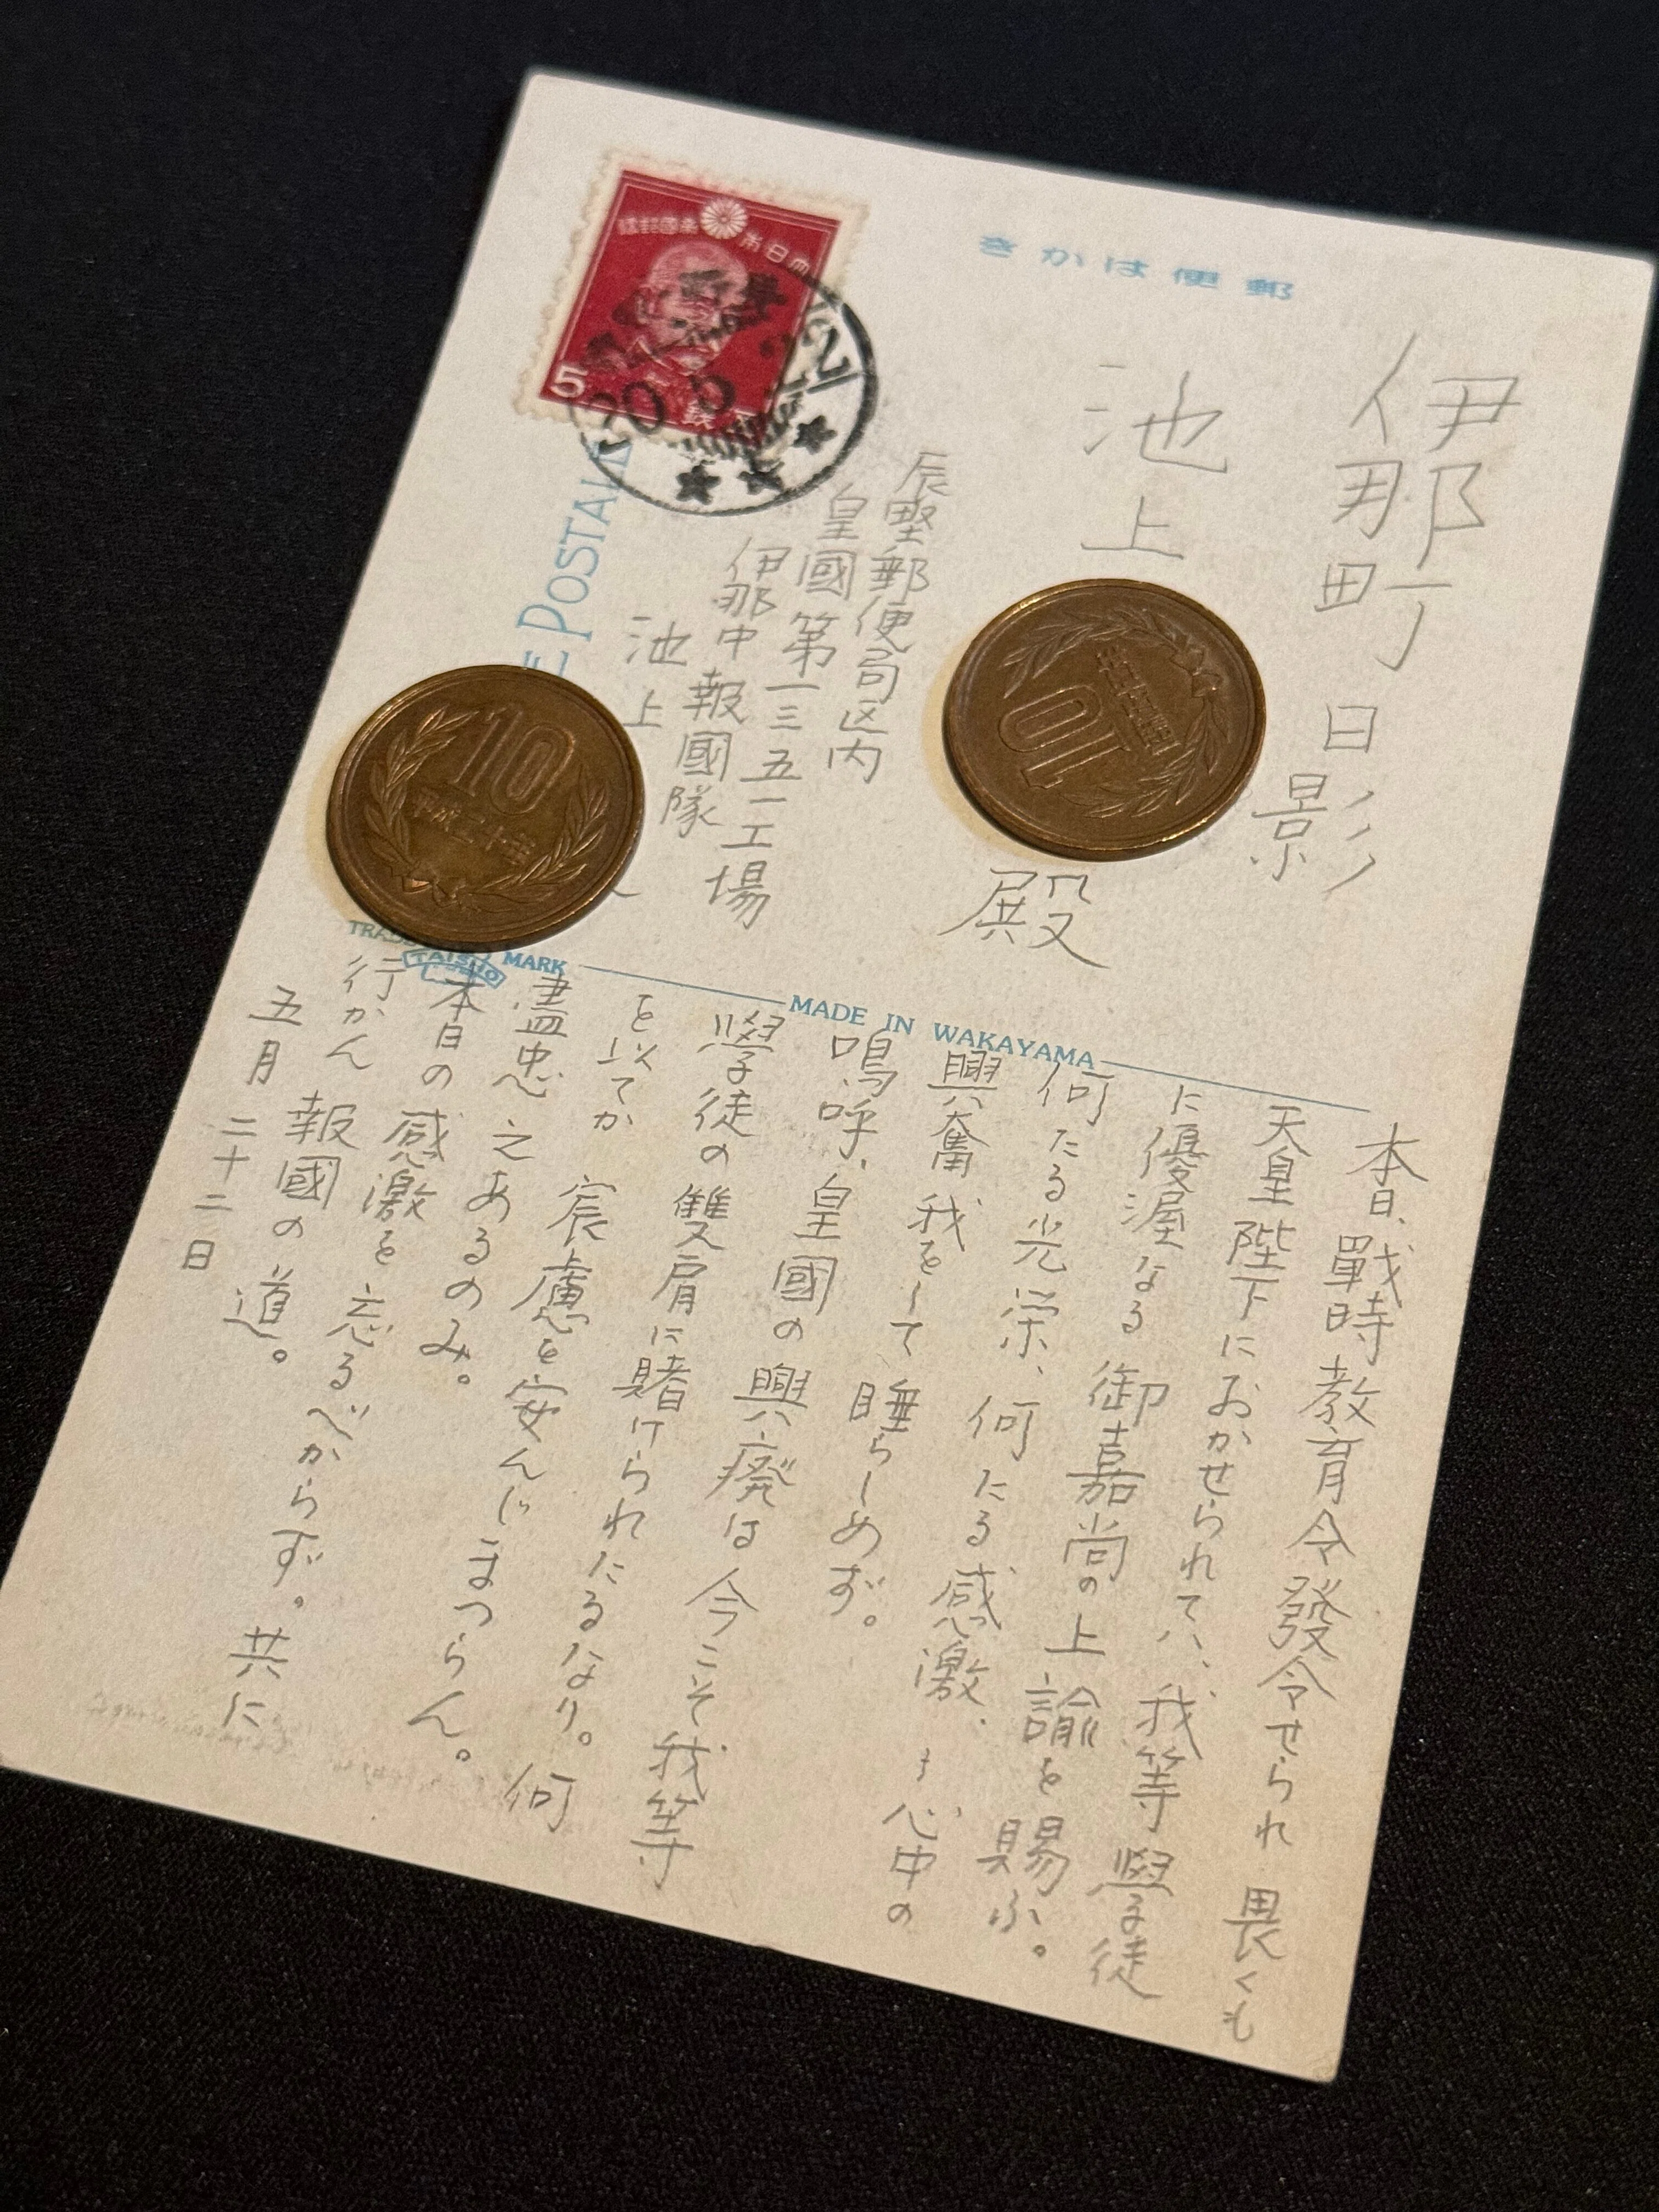 郵便はかき
伊那町日影
池上
殿
辰野郵便局区内
皇國第一三五一工場
伊那中報國隊
池上
大日本帝國郵便
5
銭
20.5.22
E POSTALE
10
平成二十年
10
TRADE MARK
TAISHO
MADE IN WAKAYAMA
本日、戰時教育令發令せられ 畏くも
天皇陛下におかせられてハ、我等學徒
に優渥なる御嘉尚の上諭を賜ふ。
何たる光栄、何たる感激、心中の
興奮我をして睡らしめず。
嗚呼、皇國の興廃は今こそ我等
學徒の雙肩に賭けられたるなり。何
を以てか 宸慮を安んじまつらん。
盡忠之あるのみ。
本日の感激を忘るべからず。共に
行かん 報國の道。
五月二十二日